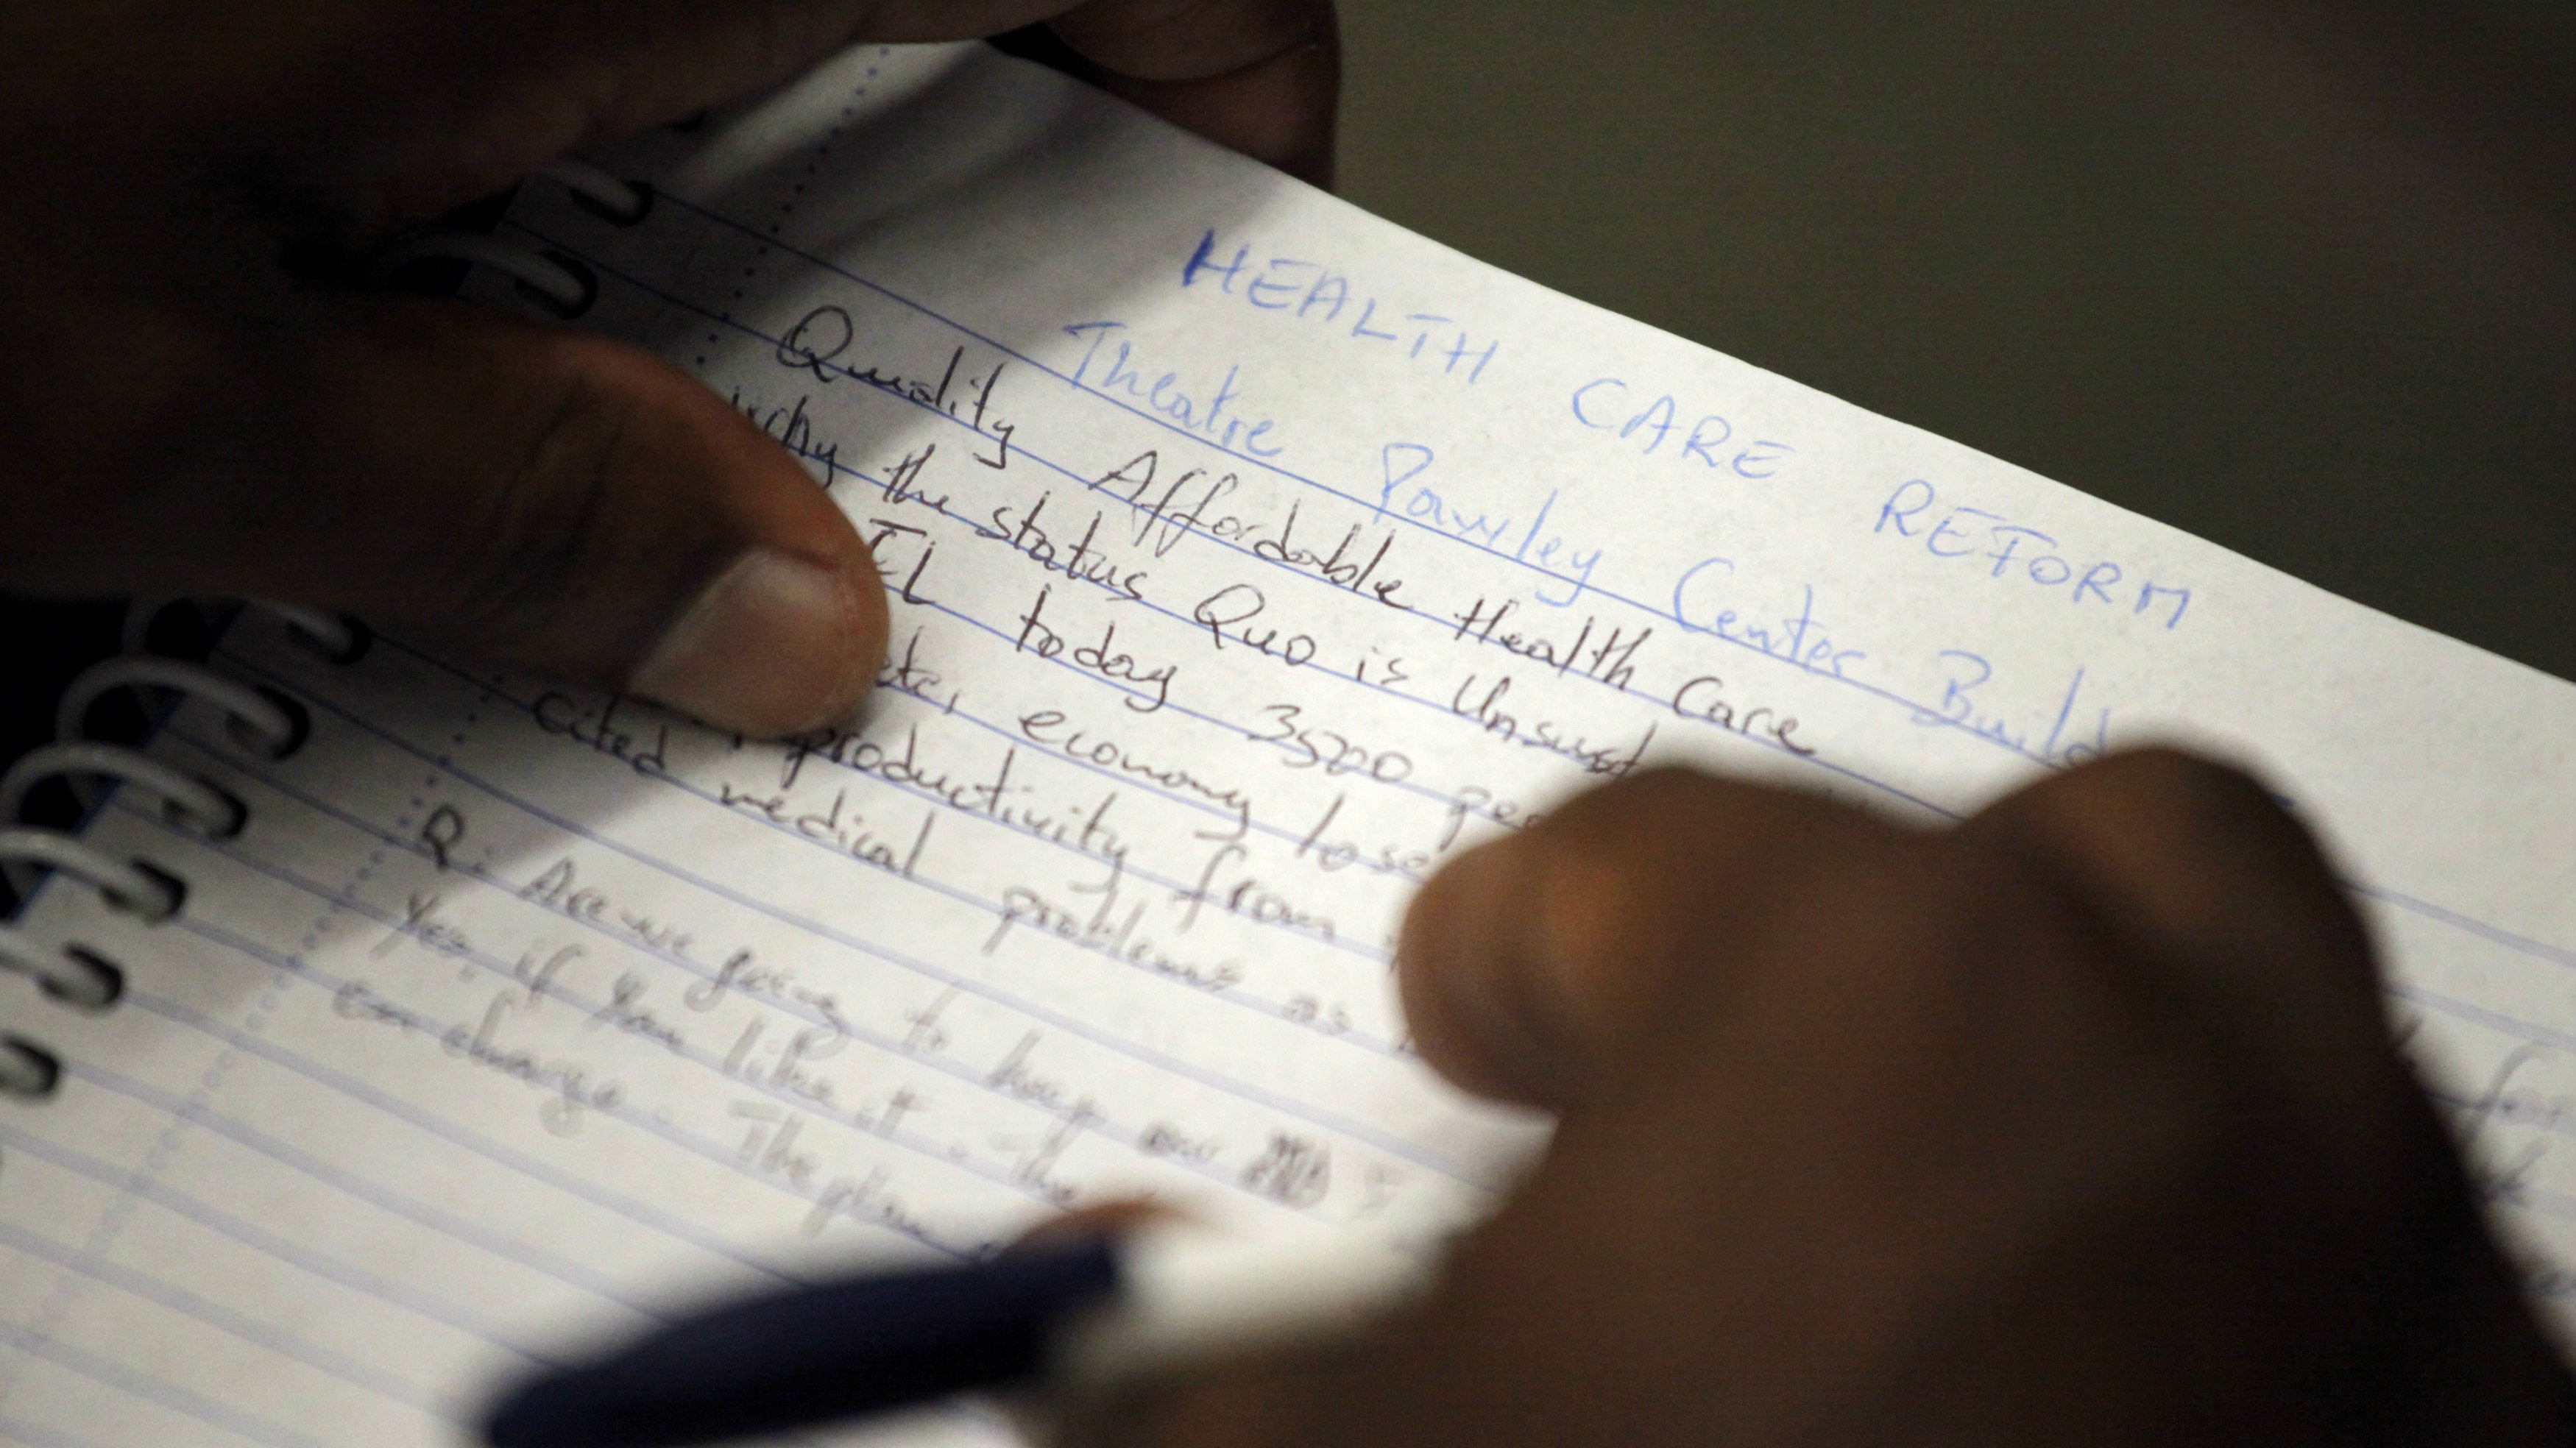 HEALTH CARE REFORM
Theatre Pawley Center Build
Quality Affordable Health Care
why the status Quo is Unsust
IL today 3500 peo
etc, economy lose
cited productivity from
medical problems as
Q. Are we going to keep our
Yes, if you like it. The
change. The plan
for